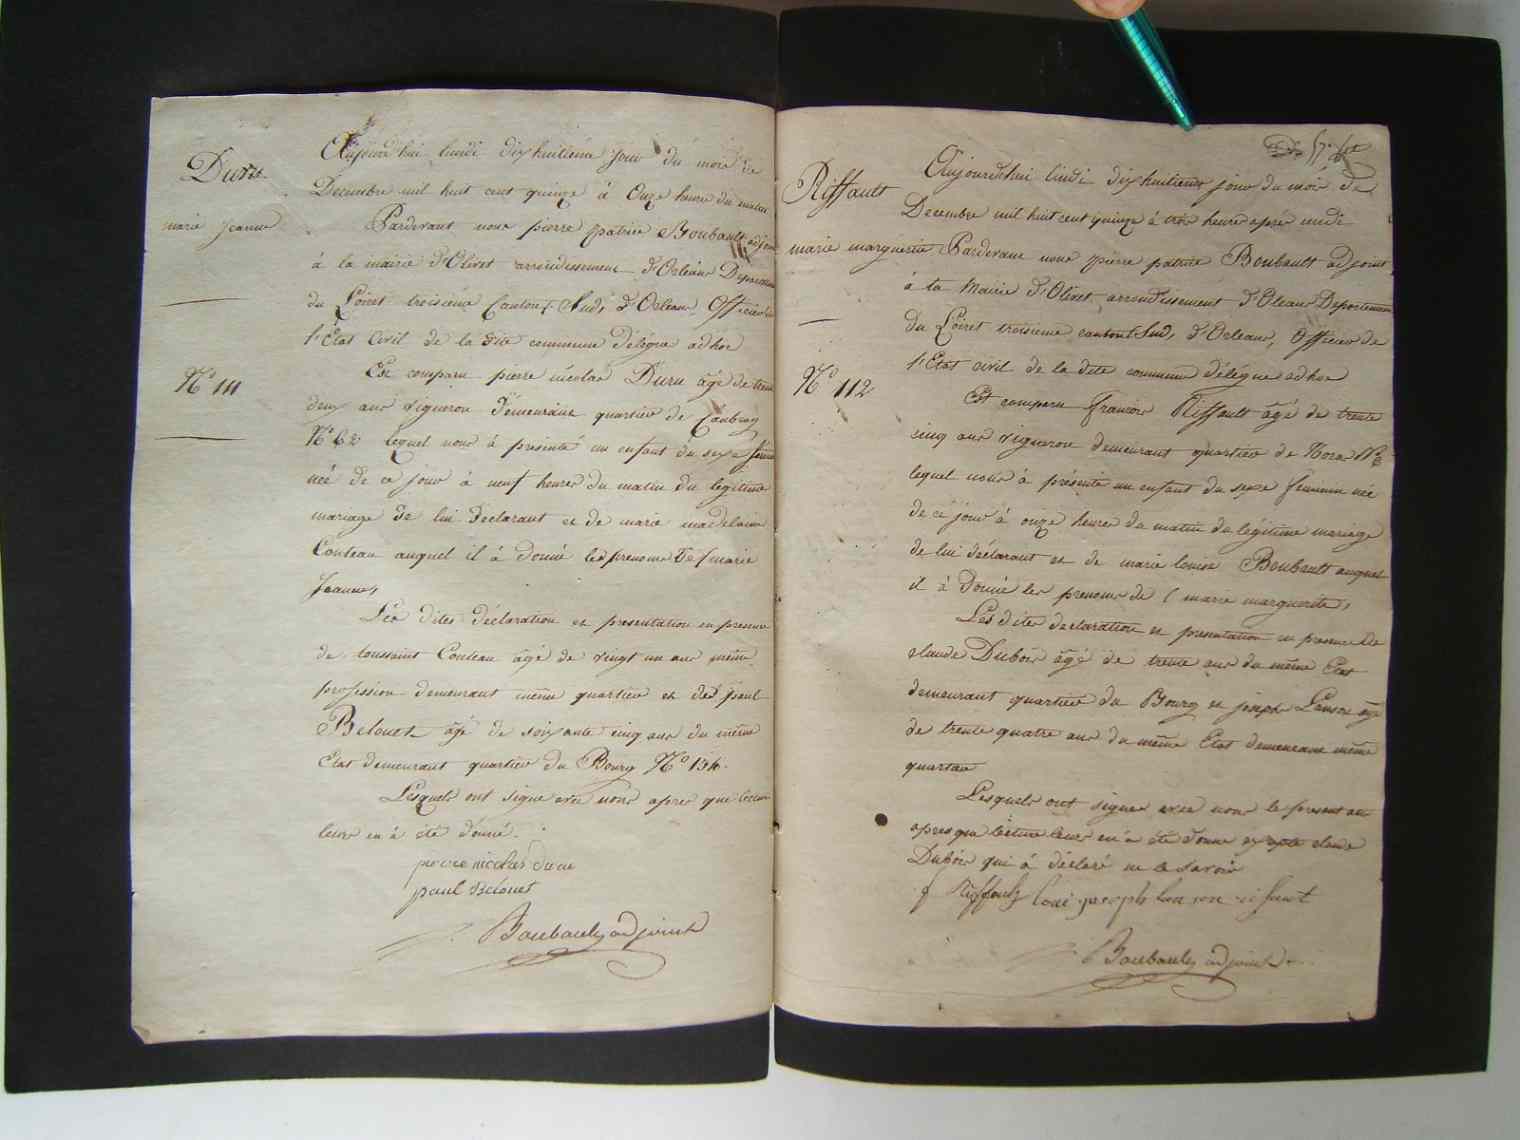 Duru
marie Jeanne
N.º 111
Aujourd'hui lundi dix huitieme jour du mois de
Decembre mil huit cent quinze à Onze heure du matin
Pardevant nous pierre patrice Boubault adjoint
à la mairie d'Olivet arrondissement d'Orléans Departement
du Loiret troisieme Canton Sud, d'Orleans Officier de
l'État Civil de la dite commune délégué adhoc
Est comparu pierre nicolas Duru âgé de trente
deux ans vigneron demeurant quartier de
N.º 62 lequel nous à presenté un enfant du sexe féminin
née de ce jour à neuf heures du matin du legitime
mariage de lui Declarant et de marie madelaine
Couteau auquel il à donné les prenoms de marie
Jeanne,
Les dites déclaration et presentation en presence
de toussaint Couteau âgé de vingt un ans même
profession demeurant même quartier et de paul
Belouet âgé de soixante cinq ans du même
Etat demeurant quartier du Bourg N.º 134.
Lesquels ont signé avec nous apres que lecture
leurs en à été donné.
pierre nicolas duru
paul Belouet
Boubault adjoint
57.
Riffault
marie marguerite
N.º 112
Aujourdhui lundi dix huitieme jour du mois de
Decembre mil huit cent quinze à trois heure aprés midi
Pardevant nous pierre patrice Boubault adjoint
à la Mairie d'Olivet arrondissement d'Orleans Departement
du Loiret troisieme canton Sud, d'Orleans, Officier de
l'Etat civil de la dite commune délégué adhoc
Est comparu francois Riffault âgé de trente
cinq ans vigneron demeurant quartier de
lequel nous à présenté un enfant du sexe feminin née
de ce jour à onze heures du matin du légitime mariage
de lui déclarant et de marie louise Boubault auquel
il à donné les prenoms de marie marguerite,
Les dites declaration et presentation en presence de
claude Dubois âgé de trente ans du même Etat
demeurant quartier du Bourg et joseph Lanson âgé
de trente quatre ans du même Etat demeurant même
quartier
Lesquels ont signer avec nous le present acte
apres que lecture leurs en à été donné excepté claude
Dubois qui à déclaré ne le savoir
f Riffault Loui joseph lanson
Boubault adjoint